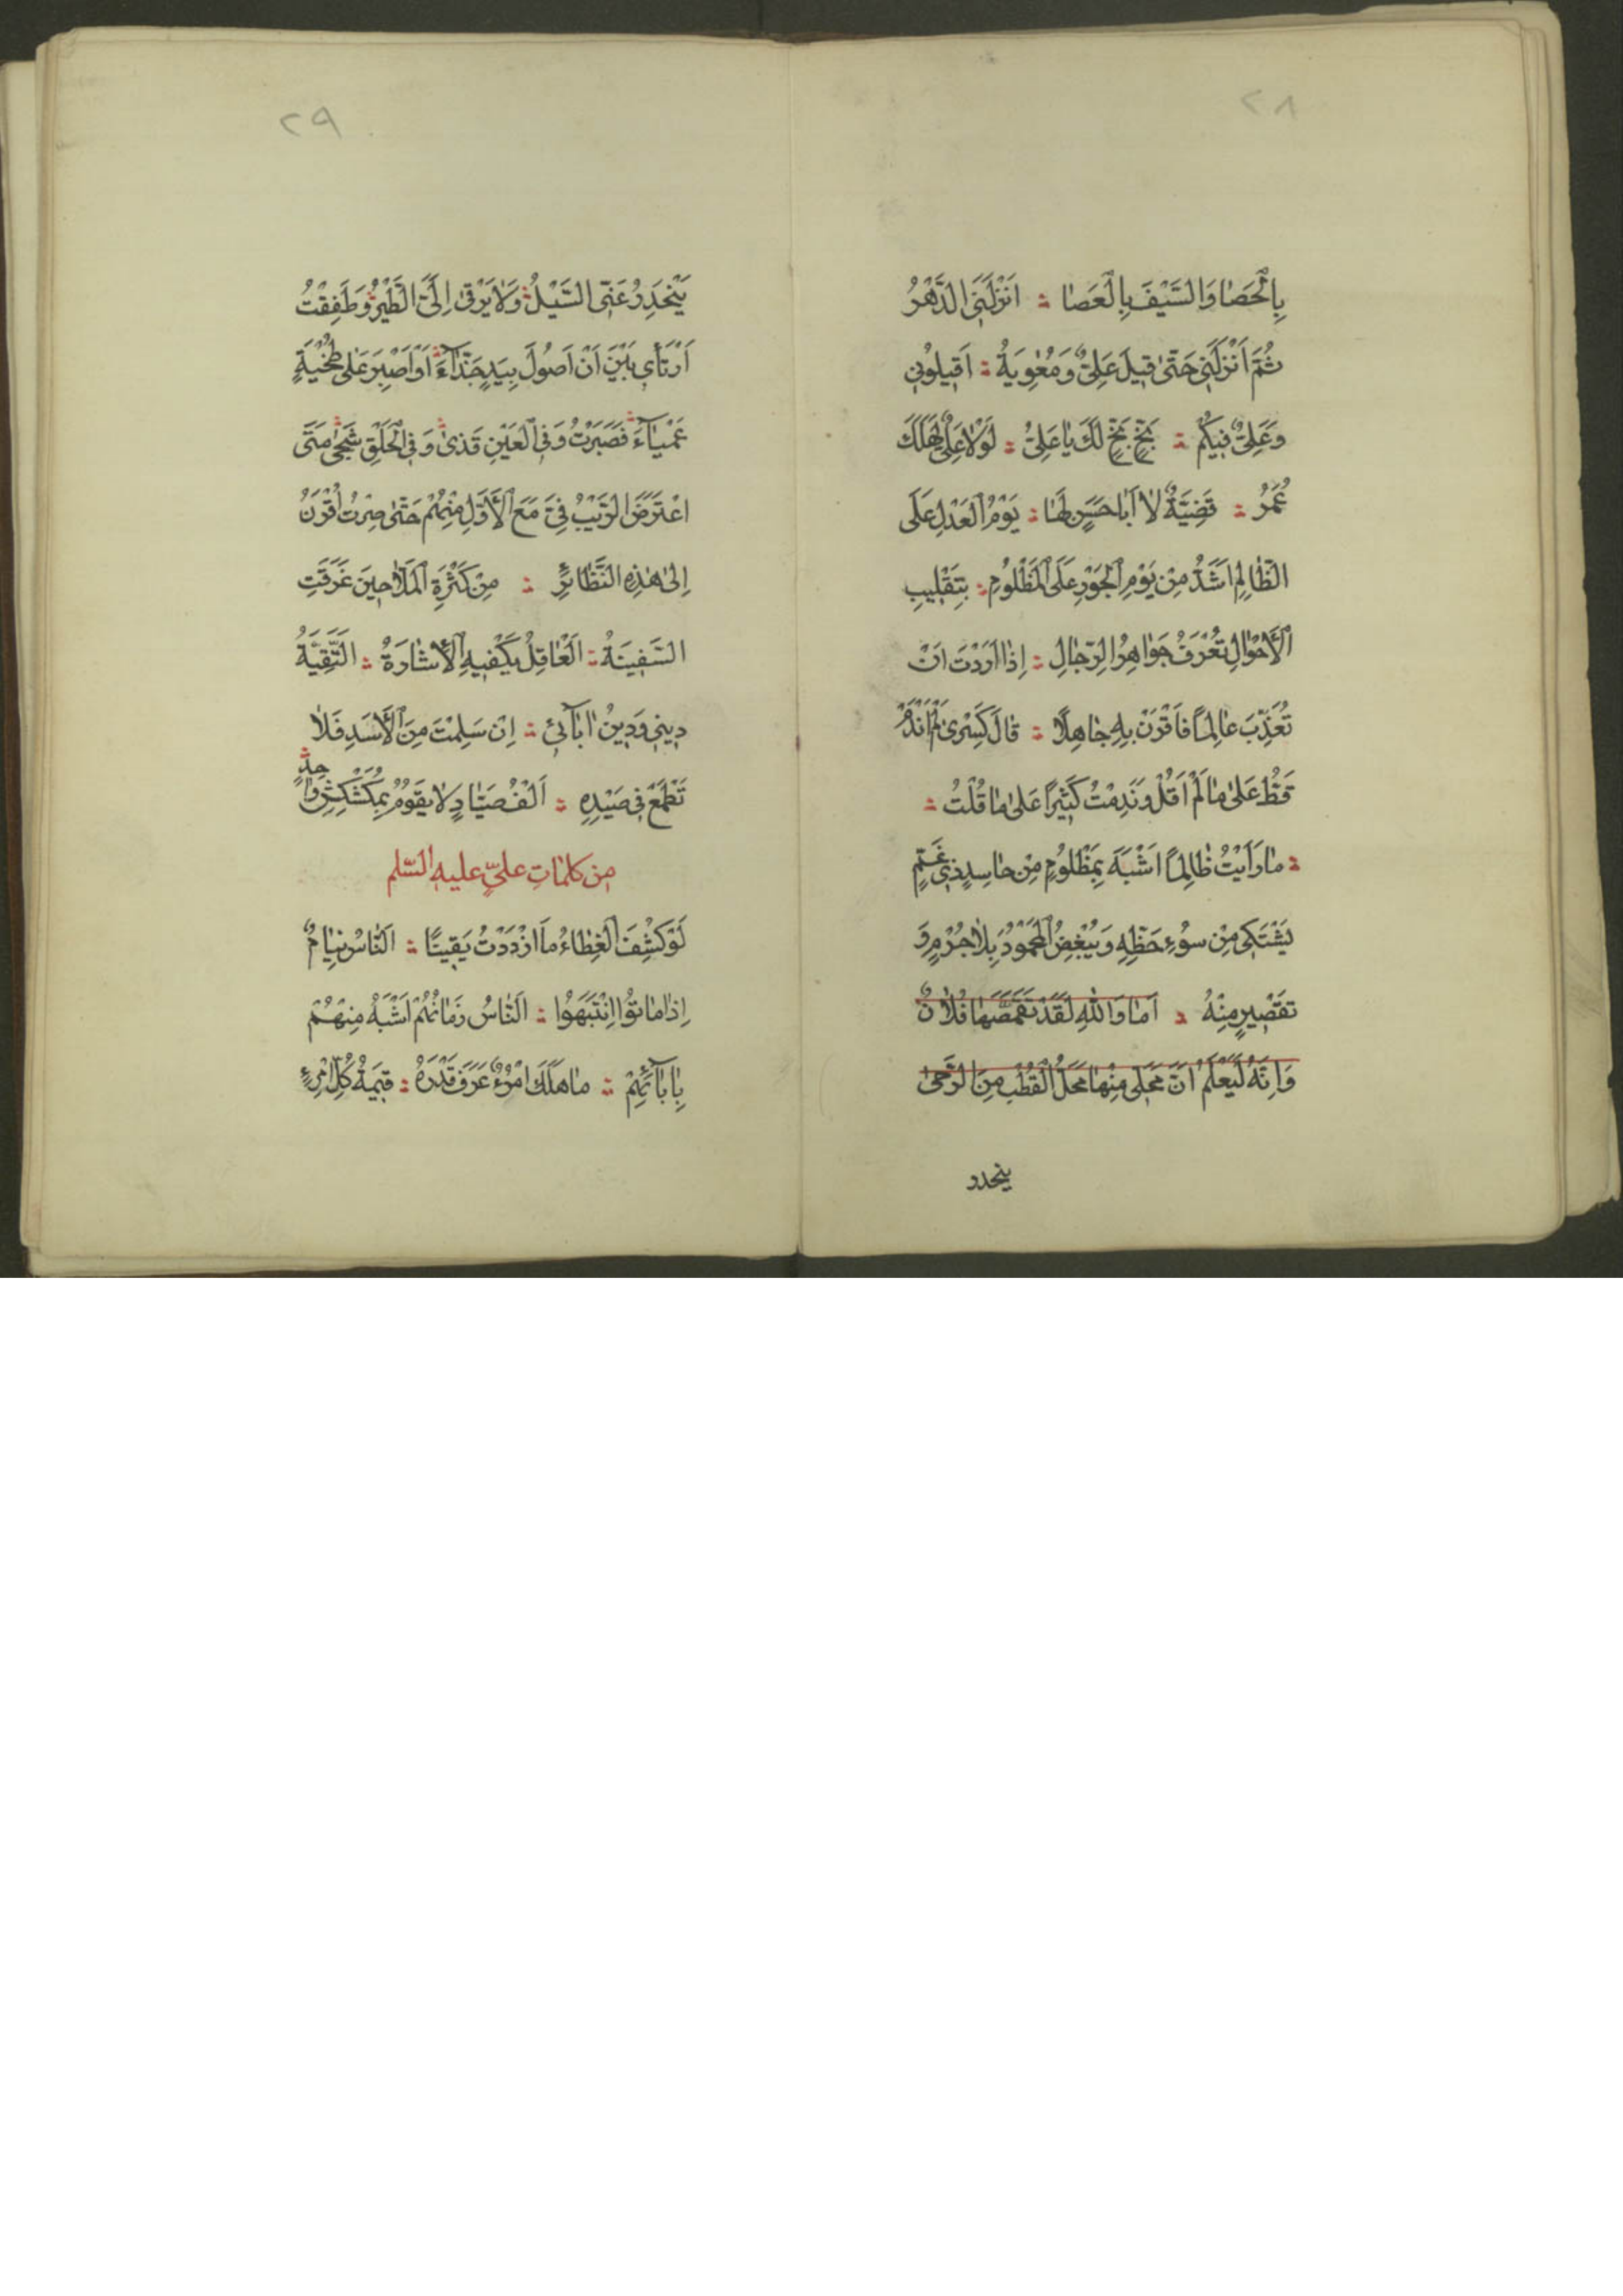 ٢٨
بِالْحَصَا وَالسَّيْفَ بِالْعَصَا ؛ اَنْزَلَنِى الدَّهْرُ
ثُمَّ اَنْزَلَنِى حَتّٰى قِيلَ عَلِىٌّ وَ مُعٰوِيَةُ ؛ اَقِيلُونِى
وَ عَلِىٌّ فِيكُمْ ؛ بَخٍّ بَخٍّ لَكَ يَا عَلِىُّ ؛ لَوْلَا عَلِىٌّ لَهَلَكَ
عُمَرُ ؛ قَضِيَّةٌ لَا اَبَا حَسَنٍ لَهَا ؛ يَوْمُ الْعَدْلِ عَلَى
الظَّالِمِ اَشَدُّ مِنْ يَوْمِ الْجَوْرِ عَلَى الْمَظْلُومِ ؛ بِتَقْلِيبِ
الْأَحْوَالِ تُعْرَفُ جَوَاهِرُ الرِّجَالِ ؛ اِذَا اَرَدْتَ اَنْ
تُعَذِّبَ عَالِمًا فَاقْرَنْ بِهِ جَاهِلًا ؛ قَالَ كَسْرٰى لَمْ اَنْدَمْ
قَطُّ عَلٰى مَا لَمْ اَقُلْ وَ نَدِمْتُ كَثِيرًا عَلٰى مَا قُلْتُ ؛
؛ مَا رَاَيْتُ ظَالِمًا اَشْبَهَ بِمَظْلُومٍ مِنْ حَاسِدٍ ذِى غَمٍّ
يَشْتَكِى مِنْ سُوءِ حَظِّهِ وَ يُبْغِضُ الْمَحْمُودَ بِلَا جُرْمٍ وَ
تَقْصِيرٍ مِنْهُ ؛ اَمَا وَاللّٰهِ لَقَدْ تَقَمَّصَهَا فُلَانٌ
وَ اِنَّهُ لَيَعْلَمُ اَنَّ مَحَلِّى مِنْهَا مَحَلُّ الْقُطْبِ مِنَ الرَّحٰى
ينحدر
٢٩
يَنْحَدِرُ عَنِّى السَّيْلُ وَلَا يَرْقٰى اِلَىَّ الطَّيْرُ وَ طَفِقْتُ
اَرْتَأِى بَيْنَ اَنْ اَصُولَ بِيَدٍ جَذَّآءَ اَوْ اَصْبِرَ عَلٰى طُخْيَةٍ
عَمْيَآءَ فَصَبَرْتُ وَ فِى الْعَيْنِ قَذًى وَ فِى الْحَلْقِ شَجًى مَتَى
اعْتَرَضَ الرَّيْبُ فِىَّ مَعَ الْأَوَّلِ مِنْهُمْ حَتّٰى صِرْتُ اُقْرَنُ
اِلٰى هٰذِهِ النَّظَائِرِ ؛ مِنْ كَثْرَةِ الْمَلَّاحِينَ غَرَقَتِ
السَّفِينَةُ ؛ اَلْعَاقِلُ يَكْفِيهِ الْأِشَارَةُ ؛ اَلتَّقِيَّةُ
دِينِى وَ دِينُ اٰبَآئِى ؛ اِنْ سَلِمْتَ مِنَ الْأَسَدِ فَلَا
تَطْمَعْ فِى صَيْدِهِ ؛ اَلْفُ صَيَّادٍ لَا يَقُومُ بِمُكَشْكِشٍ وَاحِدٍ
مِن كلماتِ علىٍّ عليه السّلم
لَوْ كُشِفَ الْغِطَاءُ مَا ازْدَدْتُ يَقِينًا ؛ اَلنَّاسُ نِيَامٌ
اِذَا مَاتُوا اِنْتَبَهُوا ؛ اَلنَّاسُ بِزَمَانِهِمْ اَشْبَهُ مِنْهُمْ
بِاٰبَآئِهِمْ ؛ مَا هَلَكَ امْرُؤٌ عَرَفَ قَدْرَهُ ؛ قِيمَةُ كُلِّ امْرِئٍ